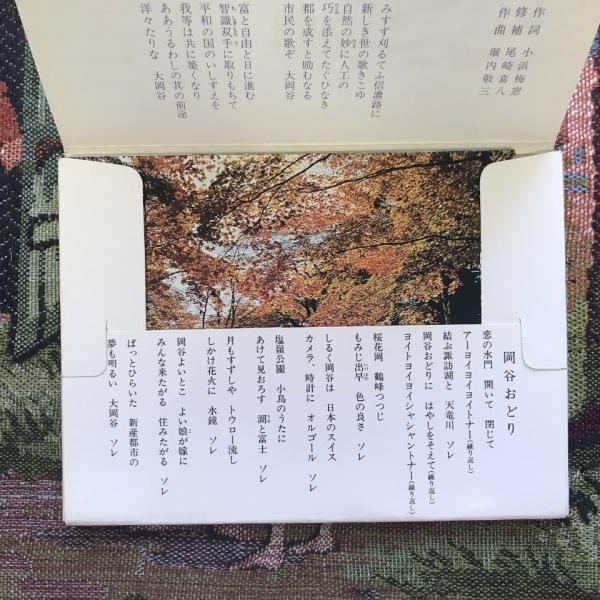 作詞 小浜梅窓
修補 尾崎喜八
作曲 堀内敬三
みすず刈るてふ信濃路に
新しき世の歌きこゆ
自然の妙に人工の
巧を添えてたぐひなき
都を成すと励むなる
市民の歌ぞ 大岡谷
富と自由と日に進む
智識双手に取りもちて
平和の国のいしずゑを
我等は共に築くなり
あゝうるわしの其の前途
洋々たりな 大岡谷
岡谷おどり
恋の水門 開いて 閉じて
アーヨイヨイヨイトナー(繰り返し)
結ぶ諏訪湖と 天竜川 ソレ
岡谷おどりに はやしをそえて(繰り返し)
ヨイトヨイヨイシャシャントナー(繰り返し)
桜花岡 鶴峰つつじ
もみじ出早 色の良さ ソレ
しるく岡谷は 日本のスイス
カメラ、時計に オルゴール ソレ
塩嶺公園 小鳥のうたに
あけて見おろす 湖と富士 ソレ
月もすずしや トウロー流し
しかけ花火に 水鏡 ソレ
岡谷よいとこ よい娘が嫁に
みんな来たがる 住みたがる ソレ
ぱっとひらいた 新産都市の
夢も明るい 大岡谷 ソレ